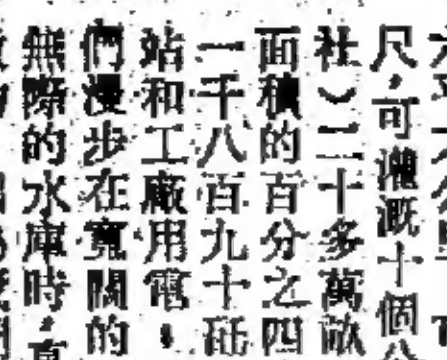 尺，可灌溉十個公
社）二十多萬畝
面積的百分之四
一千八百九十瓩
站和工廠用電，
們漫步在寬闊的
無際的水庫時，真